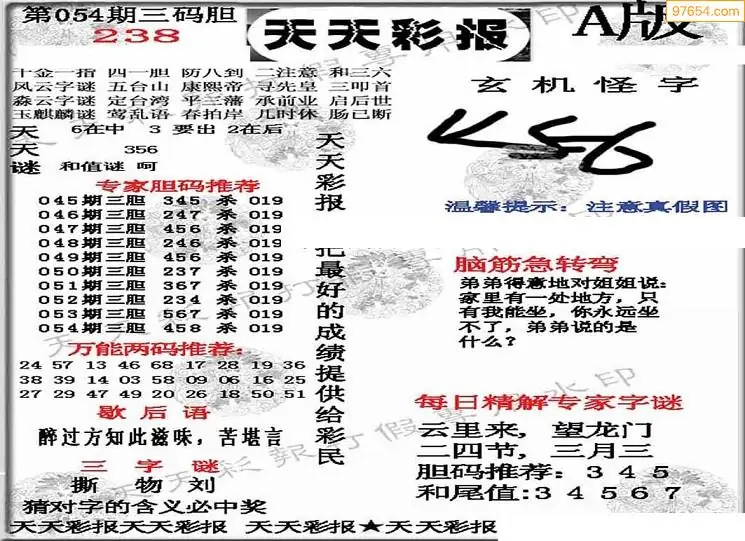 第054期三码胆
238
天天彩报
A版
97654.com
十金一指 四一胆 防八到 二注意 和三六
风云字谜 五台山 康熙帝 寻先皇 三叩首
淼云字谜 定台湾 平三藩 承前业 启后世
玉麒麟谜 莺乱语 春拍岸 几时休 肠已断
天 6在中 3 要出 2在后
天 356
谜 和值谜 呵
玄机怪字
温馨提示: 注意真假图
专家胆码推荐
045期三胆 345 杀 019
046期三胆 247 杀 019
047期三胆 456 杀 019
048期三胆 246 杀 019
049期三胆 456 杀 019
050期三胆 237 杀 019
051期三胆 367 杀 019
052期三胆 234 杀 019
053期三胆 567 杀 019
054期三胆 458 杀 019
万能两码推荐:
24 57 13 46 68 17 28 19 36
38 39 14 03 58 09 06 16 25
27 29 47 49 20 26 18 50 51
歇后语
醉过方知此滋味，苦堪言
三字谜
撕 物 刘
猜对字的含义必中奖
天天彩报
把最好的成绩提供给彩民
脑筋急转弯
弟弟得意地对姐姐说:
家里有一处地方，只
有我能坐，你永远坐
不了，弟弟说的是
什么?
每日精解专家字谜
云里来, 望龙门
二四节, 三月三
胆码推荐: 3 4 5
和尾值:3 4 5 6 7
天天彩报天天彩报 天天彩报★天天彩报